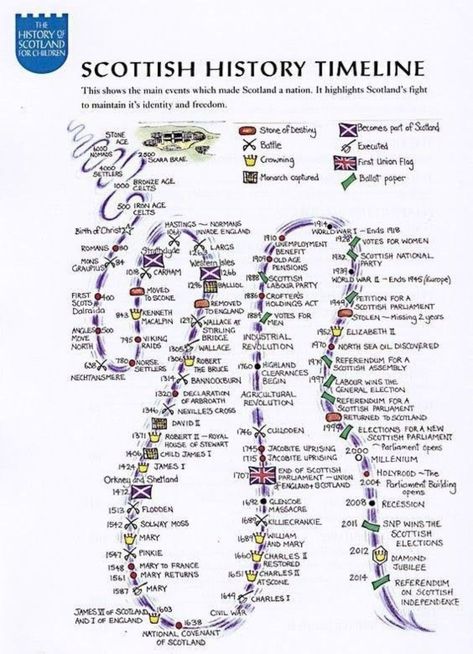 THE
HISTORY OF
SCOTLAND
FOR CHILDREN
SCOTTISH HISTORY TIMELINE
This shows the main events which made Scotland a nation. It highlights Scotland's fight
to maintain it's identity and freedom.
Stone of Destiny
Battle
Crowning
Monarch captured
Becomes part of Scotland
Executed
First Union Flag
Ballot paper
STONE
AGE
6000
NOMADS
4000
SETTLERS
3,000
SKARA BRAE
1000 BRONZE AGE
CELTS
500 IRON AGE
CELTS
Birth of Christ
ROMANS 80
MONS
GRAUPIUS 84
FIRST
SCOTS 400
Dalraida
ANGLES 500
MOVE
NORTH
638
NECHTANSMERE
780 NORSE
SETTLERS
795 VIKING
RAIDS
843 KENNETH
MACALPIN
MOVED
TO SCONE
1018 CARHAM
Strathclyde
HASTINGS ~ NORMANS
1066 INVADE ENGLAND
LARGS
Western Isles
1266
BALLIOL
REMOVED
TO ENGLAND
1297 WALLACE AT
STIRLING
BRIDGE
1305 WALLACE
1306 ROBERT
THE BRUCE
1314 BANNOCKBURN
1320 DECLARATION
OF ARBROATH
1346 NEVILLE'S CROSS
DAVID II
1371 ROBERT II - ROYAL
HOUSE OF STEWART
1406 CHILD JAMES I
1424 JAMES I
Orkney and Shetland
1472
1513 FLODDEN
1542 SOLWAY MOSS
MARY
1547 PINKIE
1548 MARY TO FRANCE
1561 MARY RETURNS
1587 MARY
JAMES VI OF SCOTLAND 1603
AND I OF ENGLAND
1638
NATIONAL COVENANT
OF SCOTLAND
CIVIL WAR
1649 CHARLES I
1651 CHARLES II
AT SCONE
1660 CHARLES II
RESTORED
1689 WILLIAM
AND MARY
1689 KILLIECRANKIE
1692 GLENCOE
MASSACRE
1707 END OF SCOTTISH
PARLIAMENT - UNION
OF ENGLAND & SCOTLAND
1715 JACOBITE UPRISING
1745 JACOBITE UPRISING
1746 CULLODEN
AGRICULTURAL
REVOLUTION
1760 HIGHLAND
CLEARANCES
BEGIN
INDUSTRIAL
REVOLUTION
VOTES FOR
MEN
1886 CROFTER'S
HOLDINGS ACT
1888 SCOTTISH
LABOUR PARTY
1909 OLD AGE
PENSIONS
1910 UNEMPLOYMENT
BENEFIT
1914 WORLD WAR I - Ends 1918
1928 VOTES FOR WOMEN
SCOTTISH NATIONAL
PARTY
1939
WORLD WAR II - Ends 1945 (Europe)
1949 PETITION FOR A
SCOTTISH PARLIAMENT
STOLEN ~ Missing 2 years
ELIZABETH II
1970 NORTH SEA OIL DISCOVERED
1979 REFERENDUM FOR A
SCOTTISH ASSEMBLY
1997 LABOUR WINS THE
GENERAL ELECTION
REFERENDUM FOR A
SCOTTISH PARLIAMENT
RETURNED TO SCOTLAND
1999 ELECTIONS FOR A NEW
SCOTTISH PARLIAMENT
~ Parliament opens
2000 MILLENIUM
HOLYROOD ~ The
2004 Parliament Building
opens
2008 RECESSION
2011 SNP WINS THE
SCOTTISH
ELECTIONS
2012 DIAMOND
JUBILEE
2014 REFERENDUM
ON SCOTTISH
INDEPENDENCE